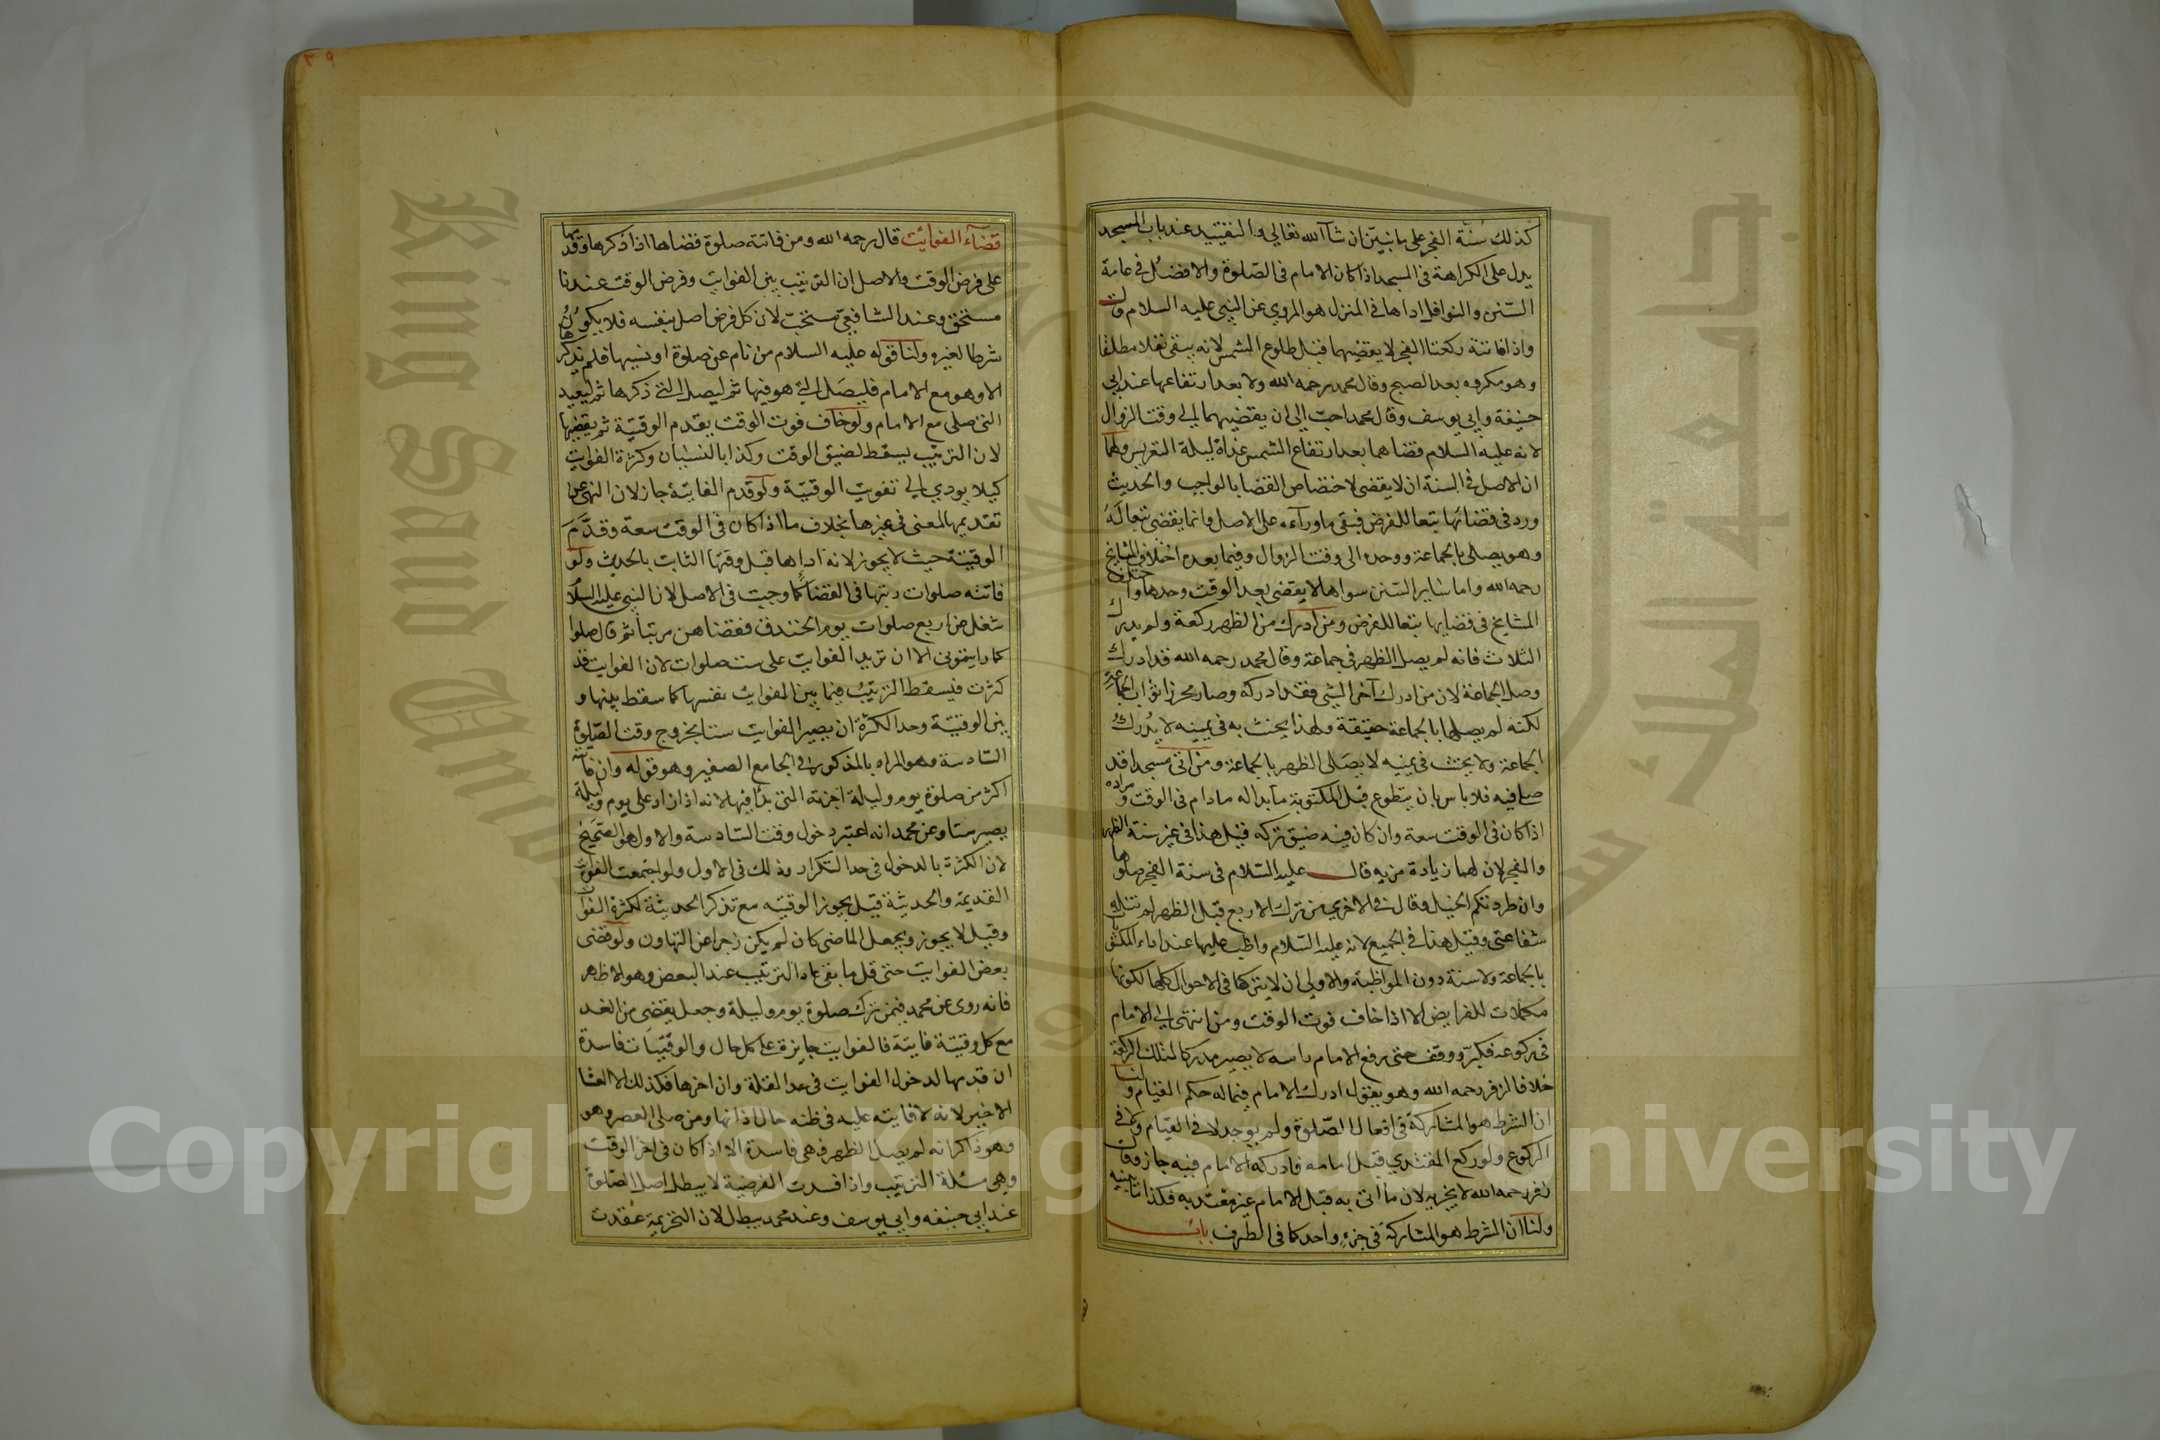 كذلك سنة الفجر على ما نبين ان شاآلله تعالى والتقييد عند باب المسجد
يدل على الكراهة فى المسجد اذا كان الامام فى الصلوة والافضل فى عامة
السنن والنوافل اداها فى المنزل هو المروي عن النبي عليه السلام قال
واذا فاتته ركعتا الفجر لا يقضيهما قبل طلوع الشمس لانه يبقى نفلا مطلقا
وهو مكروه بعد الصبح وقال محمد رحمه الله ولا بعد ارتفاعها عند ابي
حنيفة وابي يوسف وقال محمد احبّ الى ان يقضيهما الى وقت الزوال
لانه عليه السلام قضاهما بعد ارتفاع الشمس غداة ليلة التعريس ولهما
ان الاصل فى السنة ان لا يقضى لاختصاص القضا بالواجب والحديث
ورد فى قضائها تبعا للفرض فبقى ما ورآءه على الاصل وانما يقضى تبعا له
وهو يصلى بالجماعة ووحده الى وقت الزوال وفيما بعده اختلاف المشايخ
رحمه الله واما سائر السنن سواها لا يقضى بعد الوقت وحدها واختلف
المشايخ فى قضايها تبعا للفرض ومن ادرك من الظهر ركعة ولم يدرك
الثلاث فانه لم يصل الظهر فى جماعة وقال محمد رحمه الله قد ادرك
وصل الجماعة لان من ادرك آخر الشيء فقد ادركه وصار محرزا ثواب الجماعة
لكنه لم يصلها بالجماعة حقيقة ولهذا يحنث به فى يمينه لا يدرك
الجماعة ولا يحنث فى يمينه لا يصلى الظهر بالجماعة ومن اتى مسجدا قد
صلى فيه فلا باس بان يتطوع قبل المكتوبة ما بدا له ما دام فى الوقت ومراده
اذا كان فى الوقت سعة وان كان فيه ضيق تركه قيل هذا فى غير سنة الظهر
والفجر لان لهما زيادة مزية قال عليه السلام فى سنة الفجر صلوها
وان طردتكم الخيل وقال فى الاخرى من ترك الاربع قبل الظهر لم تنله
شفاعتى وقيل هذا فى الجميع لانه عليه السلام واظب عليها عند اداء المكتوبة
بالجماعة ولا سنة دون المواظبة والاولى ان لا يتركها فى الاحوال كلها لكونها
مكملات للفرايض الا اذا خاف فوت الوقت ومن انتهى الى الامام
فى ركوعه فكبر ووقف حتى رفع الامام راسه لا يصير مدركا لتلك الركعة
خلافا لزفر رحمه الله وهو يقول ادرك الامام فيما له حكم القيام ولنا
ان الشرط هو المشاركة فى افعال الصلوة ولم يوجد لا فى القيام ولا فى
الركوع ولو ركع المقتدي قبل امامه فادركه الامام فيه جاز وقال
زفر رحمه الله لا يجزيه لان ما اتى به قبل الامام غير معتد به فكذا ما يبنيه
ولنا ان الشرط هو المشاركة فى جزء واحد كما فى الطرف باب
قضآء الفوائت قال رحمه الله ومن فاتته صلوة قضاها اذا ذكرها وقدمها
على فرض الوقت والاصل ان الترتيب بين الفوايت وفرض الوقت عندنا
مستحق وعند الشافعي مستحبّ لان كل فرض اصل بنفسه فلا يكون
شرطا لغيره ولنا قوله عليه السلام من نام عن صلوة او نسيها فلم يذكرها
الا وهو مع الامام فليصل التي هو فيها ثم ليصل التى ذكرها ثم ليعيد
التى صلى مع الامام ولو خاف فوت الوقت يقدم الوقتية ثم يقضيها
لان الترتيب يسقط لضيق الوقت وكذا بالنسيان وكثرة الفوايت
كيلا يودي الى تفويت الوقتية ولو قدم الفايتة جاز لان النهى عن
تقديمها لمعنى فى غيرها بخلاف ما اذا كان فى الوقت سعة وقدّم
الوقتية حيث لا يجوز لانه اداها قبل وقتها الثابت بالحديث ولو
فاتته صلوات رتبها فى القضا كما وجبت فى الاصل لان النبي عليه السلام
شغل عن اربع صلوات يوم الخندق فقضاهن مرتبا ثم قال صلوا
كما رايتمونى الا ان تزيد الفوايت على ست صلوات لان الفوايت قد
كثرت فيسقط الترتيب فيما بين الفوايت نفسها كما سقط بينها و
بين الوقتية وحد الكثرة ان يصير الفوايت ستا بخروج وقت الصلوة
السادسة وهو المراد بالمذكور فى الجامع الصغير وهو قوله وان فاتته
اكثر من صلوة يوم وليلة اجزته التى بدا بها لانه اذا زاد على يوم وليلة
يصير ستا وعن محمد انه اعتبر دخول وقت السادسة والاول هو الصحيح
لان الكثرة بالدخول فى حد التكرار وذلك فى الاول ولو اجتمعت الفوايت
القديمة والحديثة قيل يجوز الوقتيه مع تذكر الحديثة لكثرة الفوايت
وقيل لا يجوز ويجعل الماضى كان لم يكن زجرا عن التهاون ولو قضى
بعض الفوايت حتى قل ما بقى عاد الترتيب عند البعض وهو الاظهر
فانه روى عن محمد فيمن ترك صلوة يوم وليلة وجعل يقضى من الغد
مع كل وقتية فايتة فالفوايت جايزة على كل حال والوقتيات فاسدة
ان قدمها لدخول الفوايت فى حد القلة وان اخرها فكذلك الا العشا
الاخير لانه لا فايته عليه فى ظنه حال اداها ومن صلى العصر وهو
وهو ذاكر انه لم يصل الظهر فهى فاسدة الا اذا كان فى اخر الوقت
وهى مسئلة الترتيب واذا فسدت الفرضية لا يبطل اصل الصلوة
عند ابي حنيفه وابي يوسف وعند محمد يبطل لان التحريمة عقدت
King Saud University
جامعة الملك سعود
Copyright © King Saud University